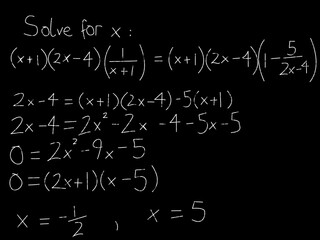 Solve for x :
(x+1)(2x-4)(1/(x+1)) = (x+1)(2x-4)(1 - 5/(2x-4)
2x-4 = (x+1)(2x-4) - 5(x+1)
2x-4 = 2x² - 2x - 4 - 5x - 5
0 = 2x² - 9x - 5
0 = (2x+1)(x-5)
x = -1/2 , x = 5